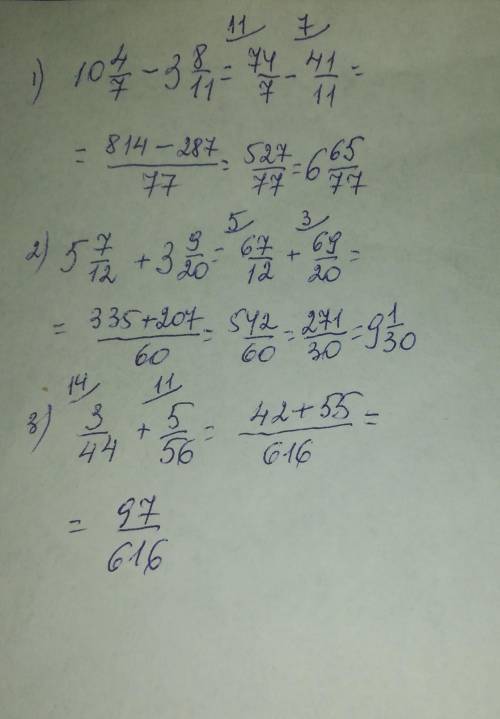 11 7
1) 10 4/7 - 3 8/11 = 74/7 - 41/11 =
= (814 - 287)/77 = 527/77 = 6 65/77
5 3
2) 5 7/12 + 3 9/20 = 67/12 + 69/20 =
= (335 + 207)/60 = 542/60 = 271/30 = 9 1/30
14 11
3) 3/44 + 5/56 = (42 + 55)/616 =
= 97/616